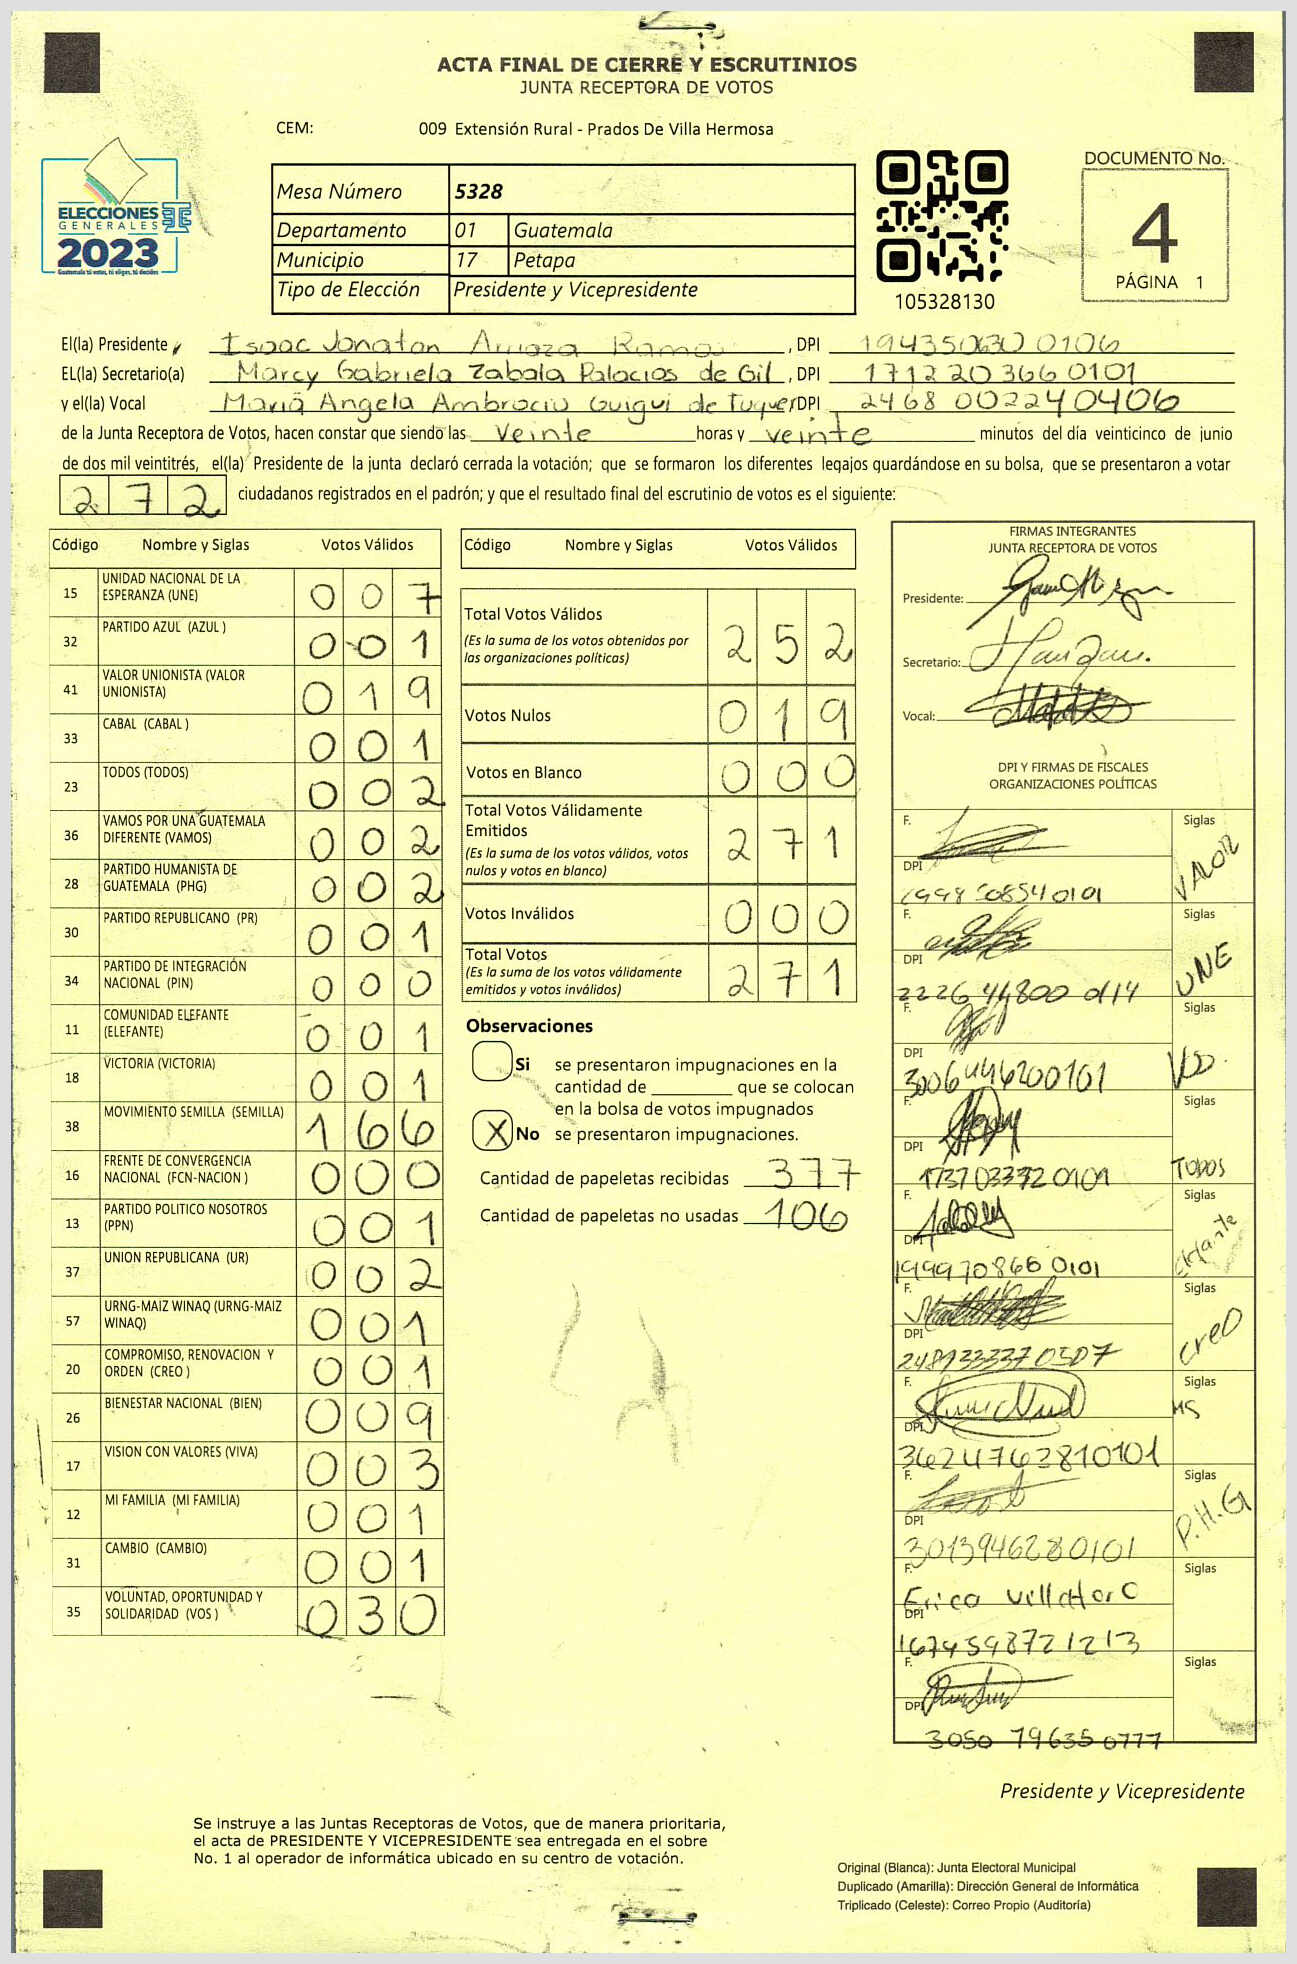 ACTA FINAL DE CIERRE Y ESCRUTINIOS
JUNTA RECEPTORA DE VOTOS
CEM: 009 Extensión Rural - Prados De Villa Hermosa
ELECCIONES
GENERALES
2023
Guatemala tú votas, tú eliges, tú decides
Mesa Número 5328
Departamento 01 Guatemala
Municipio 17 Petapa
Tipo de Elección Presidente y Vicepresidente
105328130
DOCUMENTO No.
4
PÁGINA 1
El(la) Presidente Isaac Jonatan Arriaza Ramos, DPI 194350630 0106
EL(la) Secretario(a) Marcy Gabriela Zabala Palacios de Gil, DPI 171220366 0101
y el(la) Vocal María Angela Ambrocio Guigui de Tuquer DPI 2468 002240406
de la Junta Receptora de Votos, hacen constar que siendo las veinte horas y veinte minutos del día veinticinco de junio
de dos mil veintitrés, el(la) Presidente de la junta declaró cerrada la votación; que se formaron los diferentes legajos guardándose en su bolsa, que se presentaron a votar
272 ciudadanos registrados en el padrón; y que el resultado final del escrutinio de votos es el siguiente:
Código Nombre y Siglas Votos Válidos
15 UNIDAD NACIONAL DE LA ESPERANZA (UNE) 007
32 PARTIDO AZUL (AZUL ) 001
41 VALOR UNIONISTA (VALOR UNIONISTA) 019
33 CABAL (CABAL ) 001
23 TODOS (TODOS) 002
36 VAMOS POR UNA GUATEMALA DIFERENTE (VAMOS) 002
28 PARTIDO HUMANISTA DE GUATEMALA (PHG) 002
30 PARTIDO REPUBLICANO (PR) 001
34 PARTIDO DE INTEGRACIÓN NACIONAL (PIN) 000
11 COMUNIDAD ELEFANTE (ELEFANTE) 001
18 VICTORIA (VICTORIA) 001
38 MOVIMIENTO SEMILLA (SEMILLA) 166
16 FRENTE DE CONVERGENCIA NACIONAL (FCN-NACION ) 000
13 PARTIDO POLITICO NOSOTROS (PPN) 001
37 UNION REPUBLICANA (UR) 002
57 URNG-MAIZ WINAQ (URNG-MAIZ WINAQ) 001
20 COMPROMISO, RENOVACION Y ORDEN (CREO ) 001
26 BIENESTAR NACIONAL (BIEN) 009
17 VISION CON VALORES (VIVA) 003
12 MI FAMILIA (MI FAMILIA) 001
31 CAMBIO (CAMBIO) 001
35 VOLUNTAD, OPORTUNIDAD Y SOLIDARIDAD (VOS ) 030
Código Nombre y Siglas Votos Válidos
Total Votos Válidos 252
(Es la suma de los votos obtenidos por
las organizaciones políticas)
Votos Nulos 019
Votos en Blanco 000
Total Votos Válidamente
Emitidos 271
(Es la suma de los votos válidos, votos
nulos y votos en blanco)
Votos Inválidos 000
Total Votos 271
(Es la suma de los votos válidamente
emitidos y votos inválidos)
Observaciones
Si se presentaron impugnaciones en la
cantidad de ________ que se colocan
en la bolsa de votos impugnados
X No se presentaron impugnaciones.
Cantidad de papeletas recibidas 377
Cantidad de papeletas no usadas 106
FIRMAS INTEGRANTES
JUNTA RECEPTORA DE VOTOS
Presidente:
Secretario:
Vocal:
DPI Y FIRMAS DE FISCALES
ORGANIZACIONES POLÍTICAS
F. Siglas VALOR
DPI
F. Siglas UNE
DPI
2226 44800 0114
F. Siglas
DPI
3006444200101
F. Siglas TODOS
DPI
1737033320101
F. Siglas Elefante
DPI
199970866 0101
F. Siglas CreO
DPI
F. Siglas MS
DPI
36247638 10101
F. Siglas P.H.G
DPI
3013946280101
F. Erica Villatoro Siglas
DPI
1674598721213
F. Siglas
DPI
3050 79635 0777
Presidente y Vicepresidente
Se instruye a las Juntas Receptoras de Votos, que de manera prioritaria,
el acta de PRESIDENTE Y VICEPRESIDENTE sea entregada en el sobre
No. 1 al operador de informática ubicado en su centro de votación.
Original (Blanca): Junta Electoral Municipal
Duplicado (Amarilla): Dirección General de Informática
Triplicado (Celeste): Correo Propio (Auditoría)